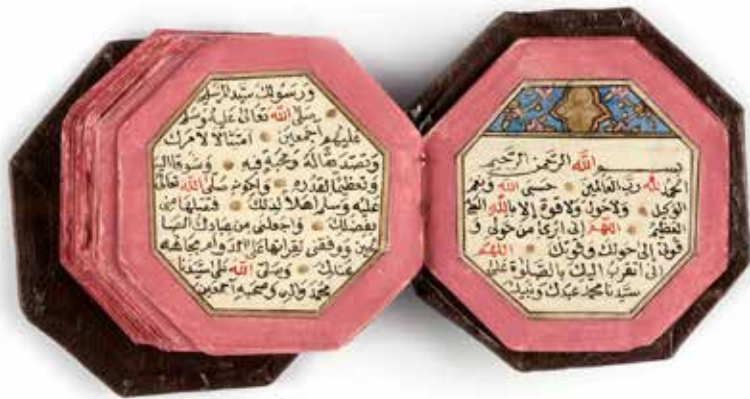 بسم الله الرحمن الرحيم
الحمد لله رب العالمين حسبي الله ونعم
الوكيل ولا حول ولا قوة إلا بالله العلي
العظيم اللهم إني أبرئ من حولي و
قوتي إلى حولك وقوتك اللهم
إني أتقرب إليك بالصلوة على
سيدنا محمد عبدك ونبيك
ورسولك سيد المرسلين
صلى الله تعالى عليه وسلم
عليهم أجمعين امتثالا لأمرك
وتصديقا له ومحبة فيه وشوقا إليه
وتعظيما لقدره ولكونه صلى الله تعالى
عليه وسلم أهلا لذلك فتقبلها مني
بفضلك واجعلني من عبادك الصا
لحين ووفقني لقرائتها على الدوام بجاهه
عندك وصلى الله على سيدنا
محمد وآله وصحبه أجمعين